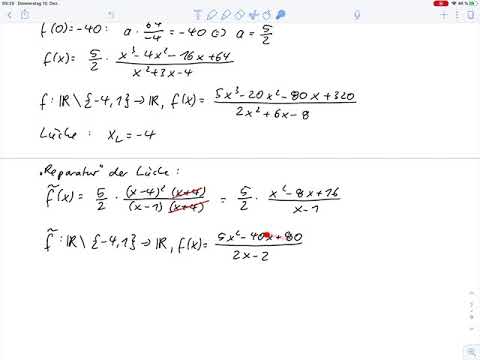 09:28 Donnerstag 10. Dez. 86 %
f(0)=-40: a · 64/-4 = -40 ⇔ a = 5/2
f(x)= 5/2 · (x³-4x²-16x+64)/(x²+3x-4)
f: ℝ \ {-4,1} → ℝ, f(x)= (5x³-20x²-80x+320)/(2x²+6x-8)
Lücke: x_L = -4
„Reparatur" der Lücke:
f̃(x)= 5/2 · ((x-4)² (x+4))/((x-1) (x+4)) = 5/2 · (x²-8x+16)/(x-1)
f̃: ℝ \ {-4,1} → ℝ, f(x)= (5x²-40x+80)/(2x-2)